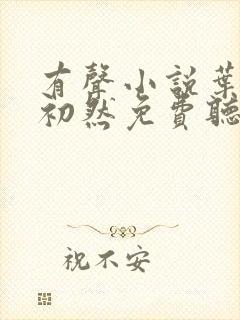 有聲小說葉
初然免費聽
祝不安